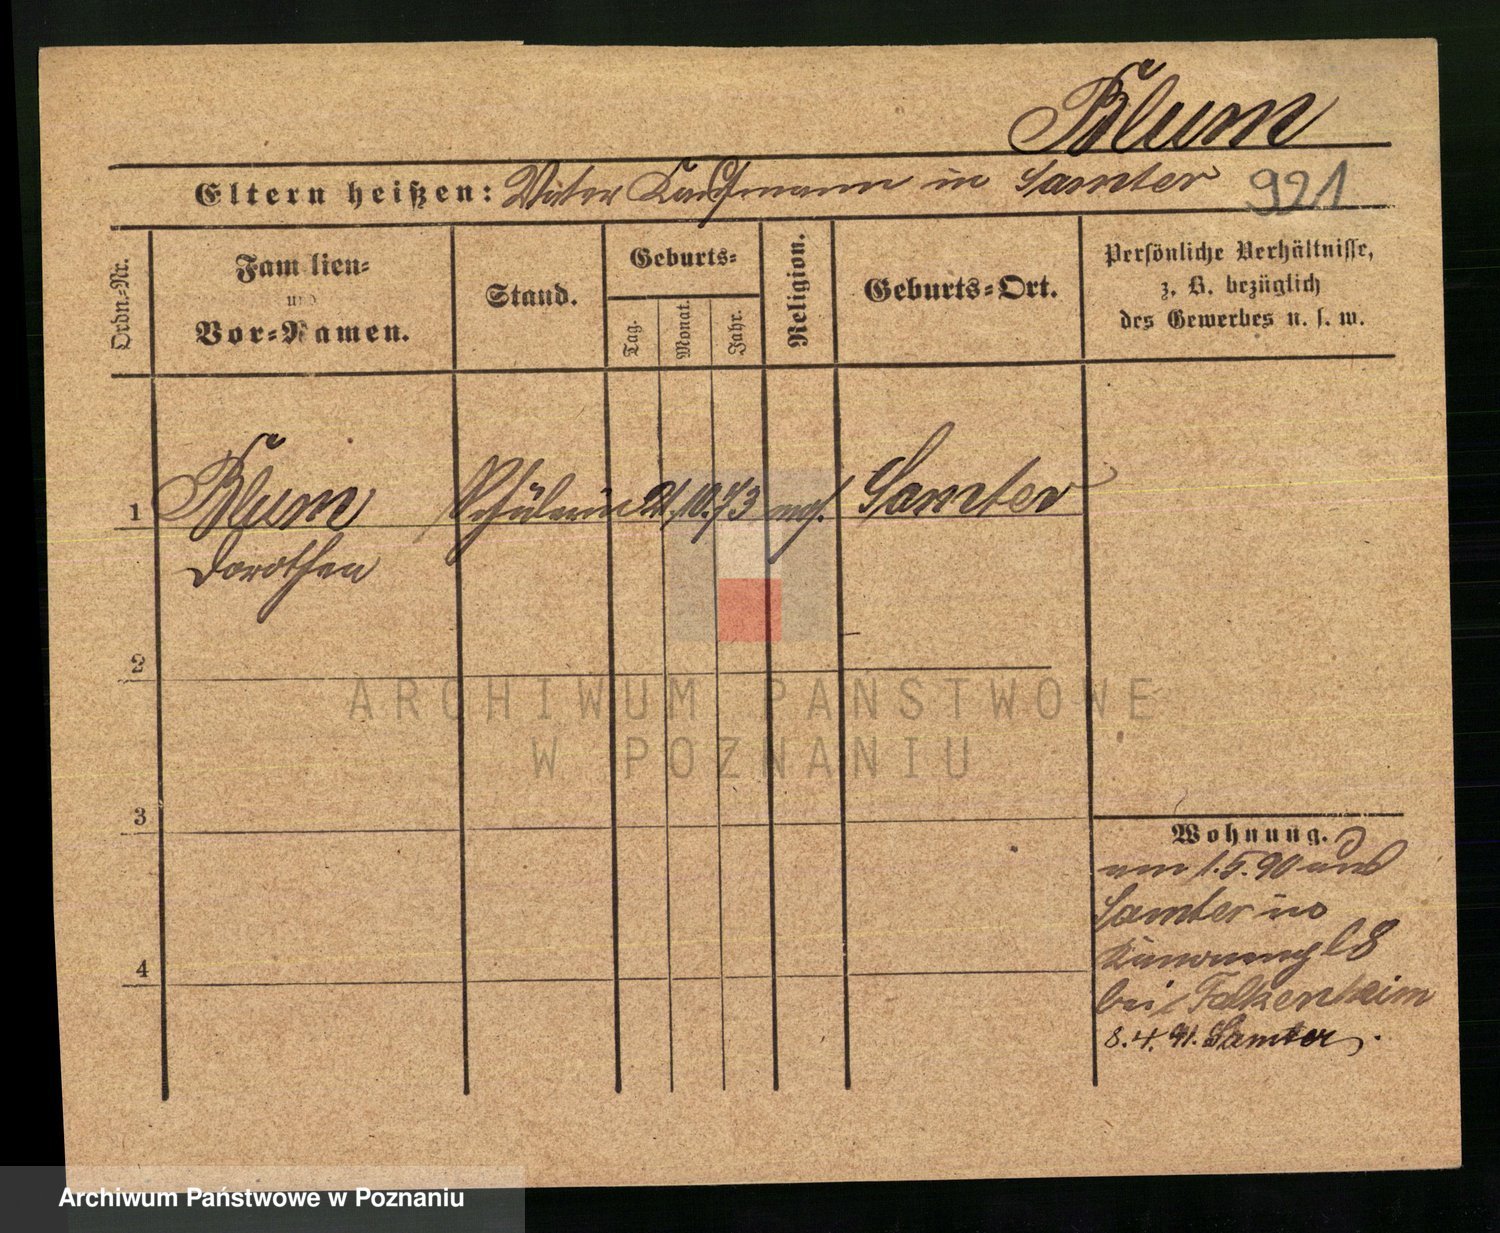 Blum
Eltern heißen: Vater Kaufmann in Samter 921
Ordn=Nr. Familien= und Vor=Namen. Stand. Geburts= Tag. Monat. Jahr. Religion. Geburts=Ort. Persönliche Verhältnisse, z. B. bezüglich des Gewerbes u. s. w.
1 Blum Schülerin 21. 10. 73 Samter
Dorothea
2
3
4
Wohnung.
am 1.5.90 aus
Samter
bei Falkenheim
8.4.91. Samter.
ARCHIWUM PAŃSTWOWE
W POZNANIU
Archiwum Państwowe w Poznaniu